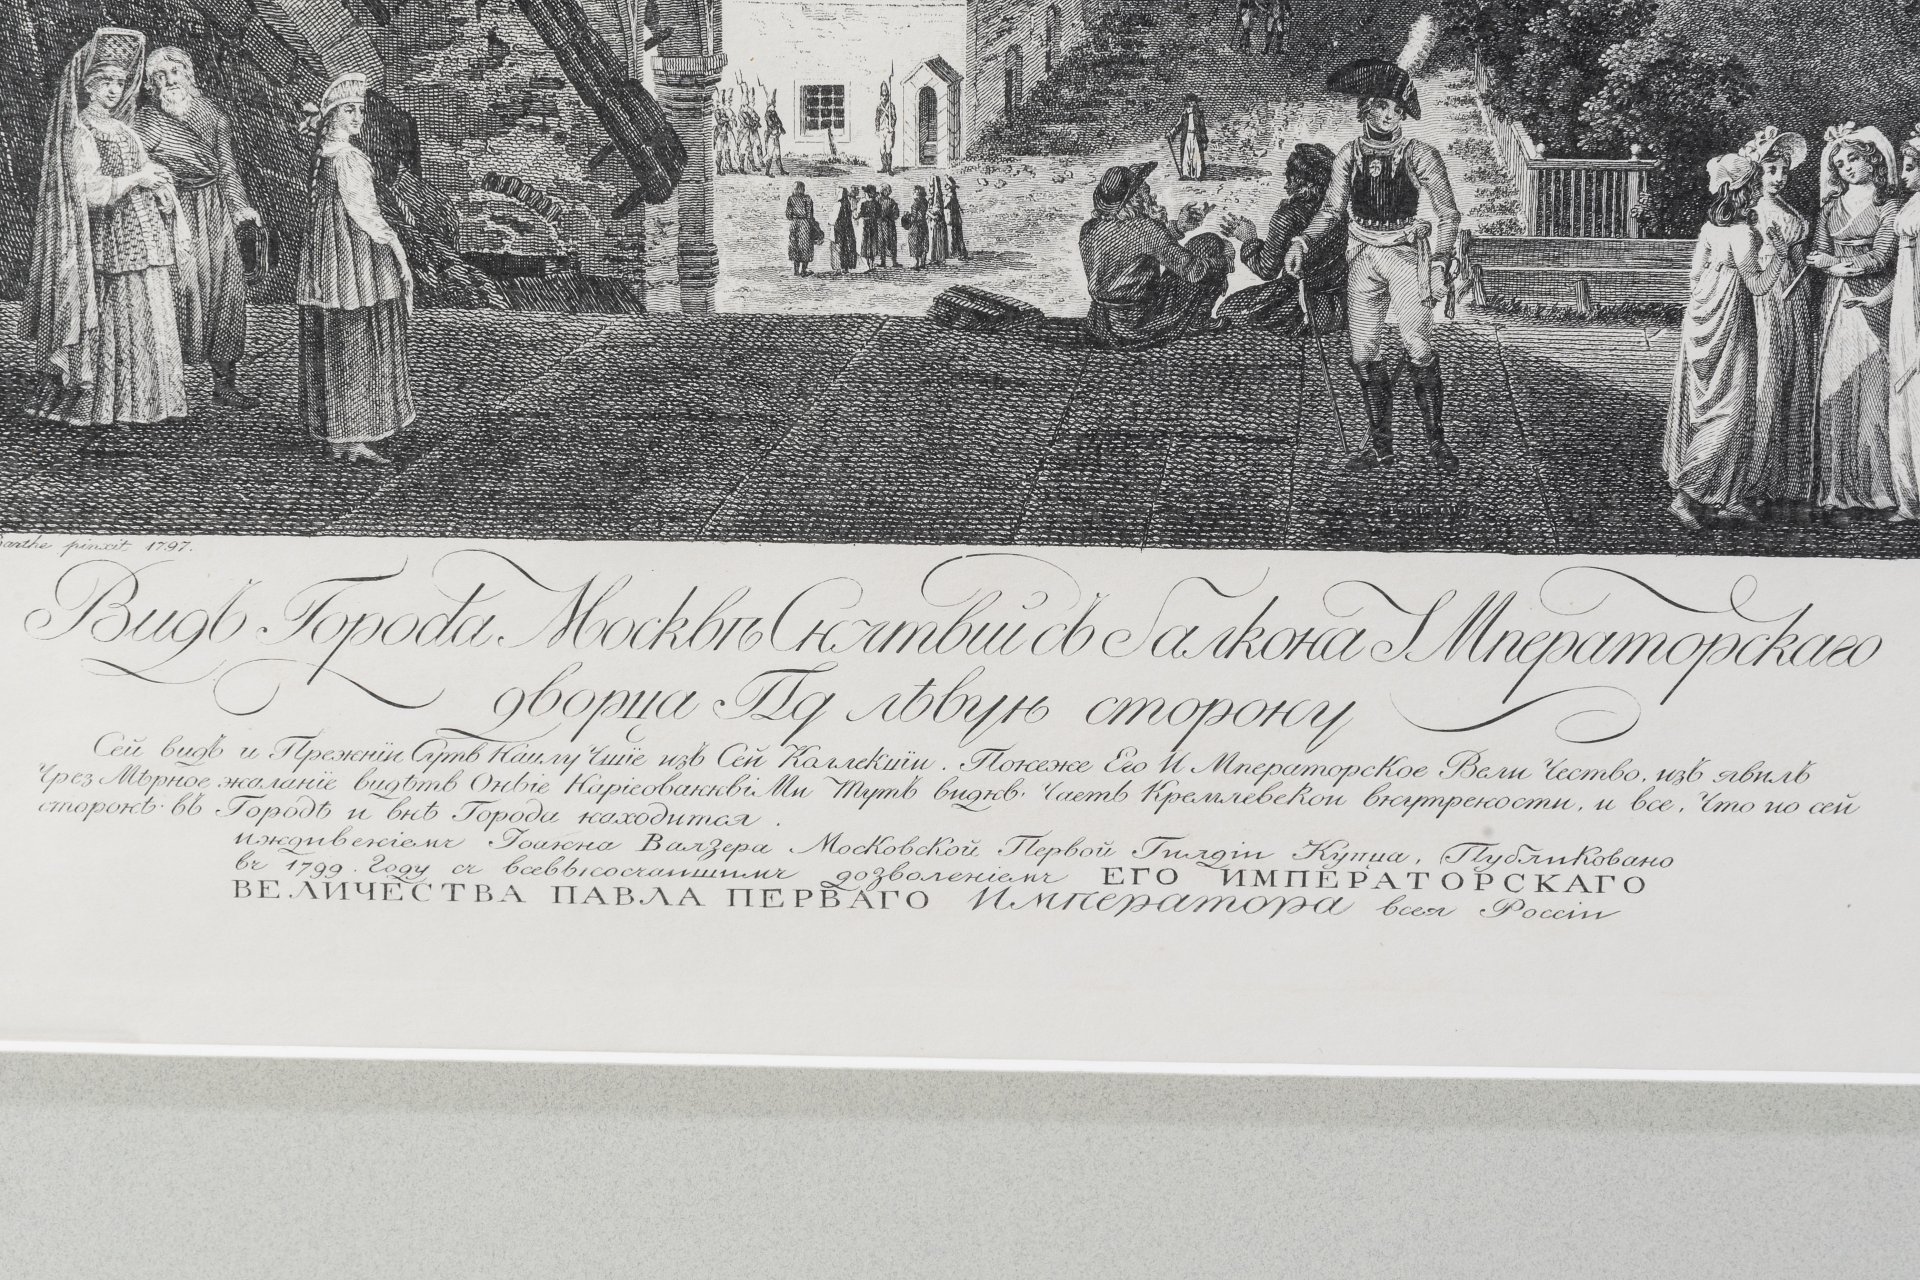 Barthe pinxit 1797.
Видъ Города Москвъ Снятвій съ балкона Императорскаго
дворца На лѣвую сторону
Сей видъ и Прежнїи Суть Наилучшїе изъ Сей Коллекціи. Понеже Его Императорское Величество, изъявилъ
Чрез Мѣрное желаніе видѣть Онвіе Нарісованнвіми Тутъ виднв. Часть Кремлевской внутрености, и все, что по сей
сторонѣ въ Городѣ и внѣ Города находится.
иждивеніемъ Іоанна Валзера Московской Первой Гилдіи Купца, Публиковано
въ 1799. Году съ всеввісочаишимъ дозволеніемъ ЕГО ИМПЕРАТОРСКАГО
ВЕЛИЧЕСТВА ПАВЛА ПЕРВАГО Императора всея Россіи